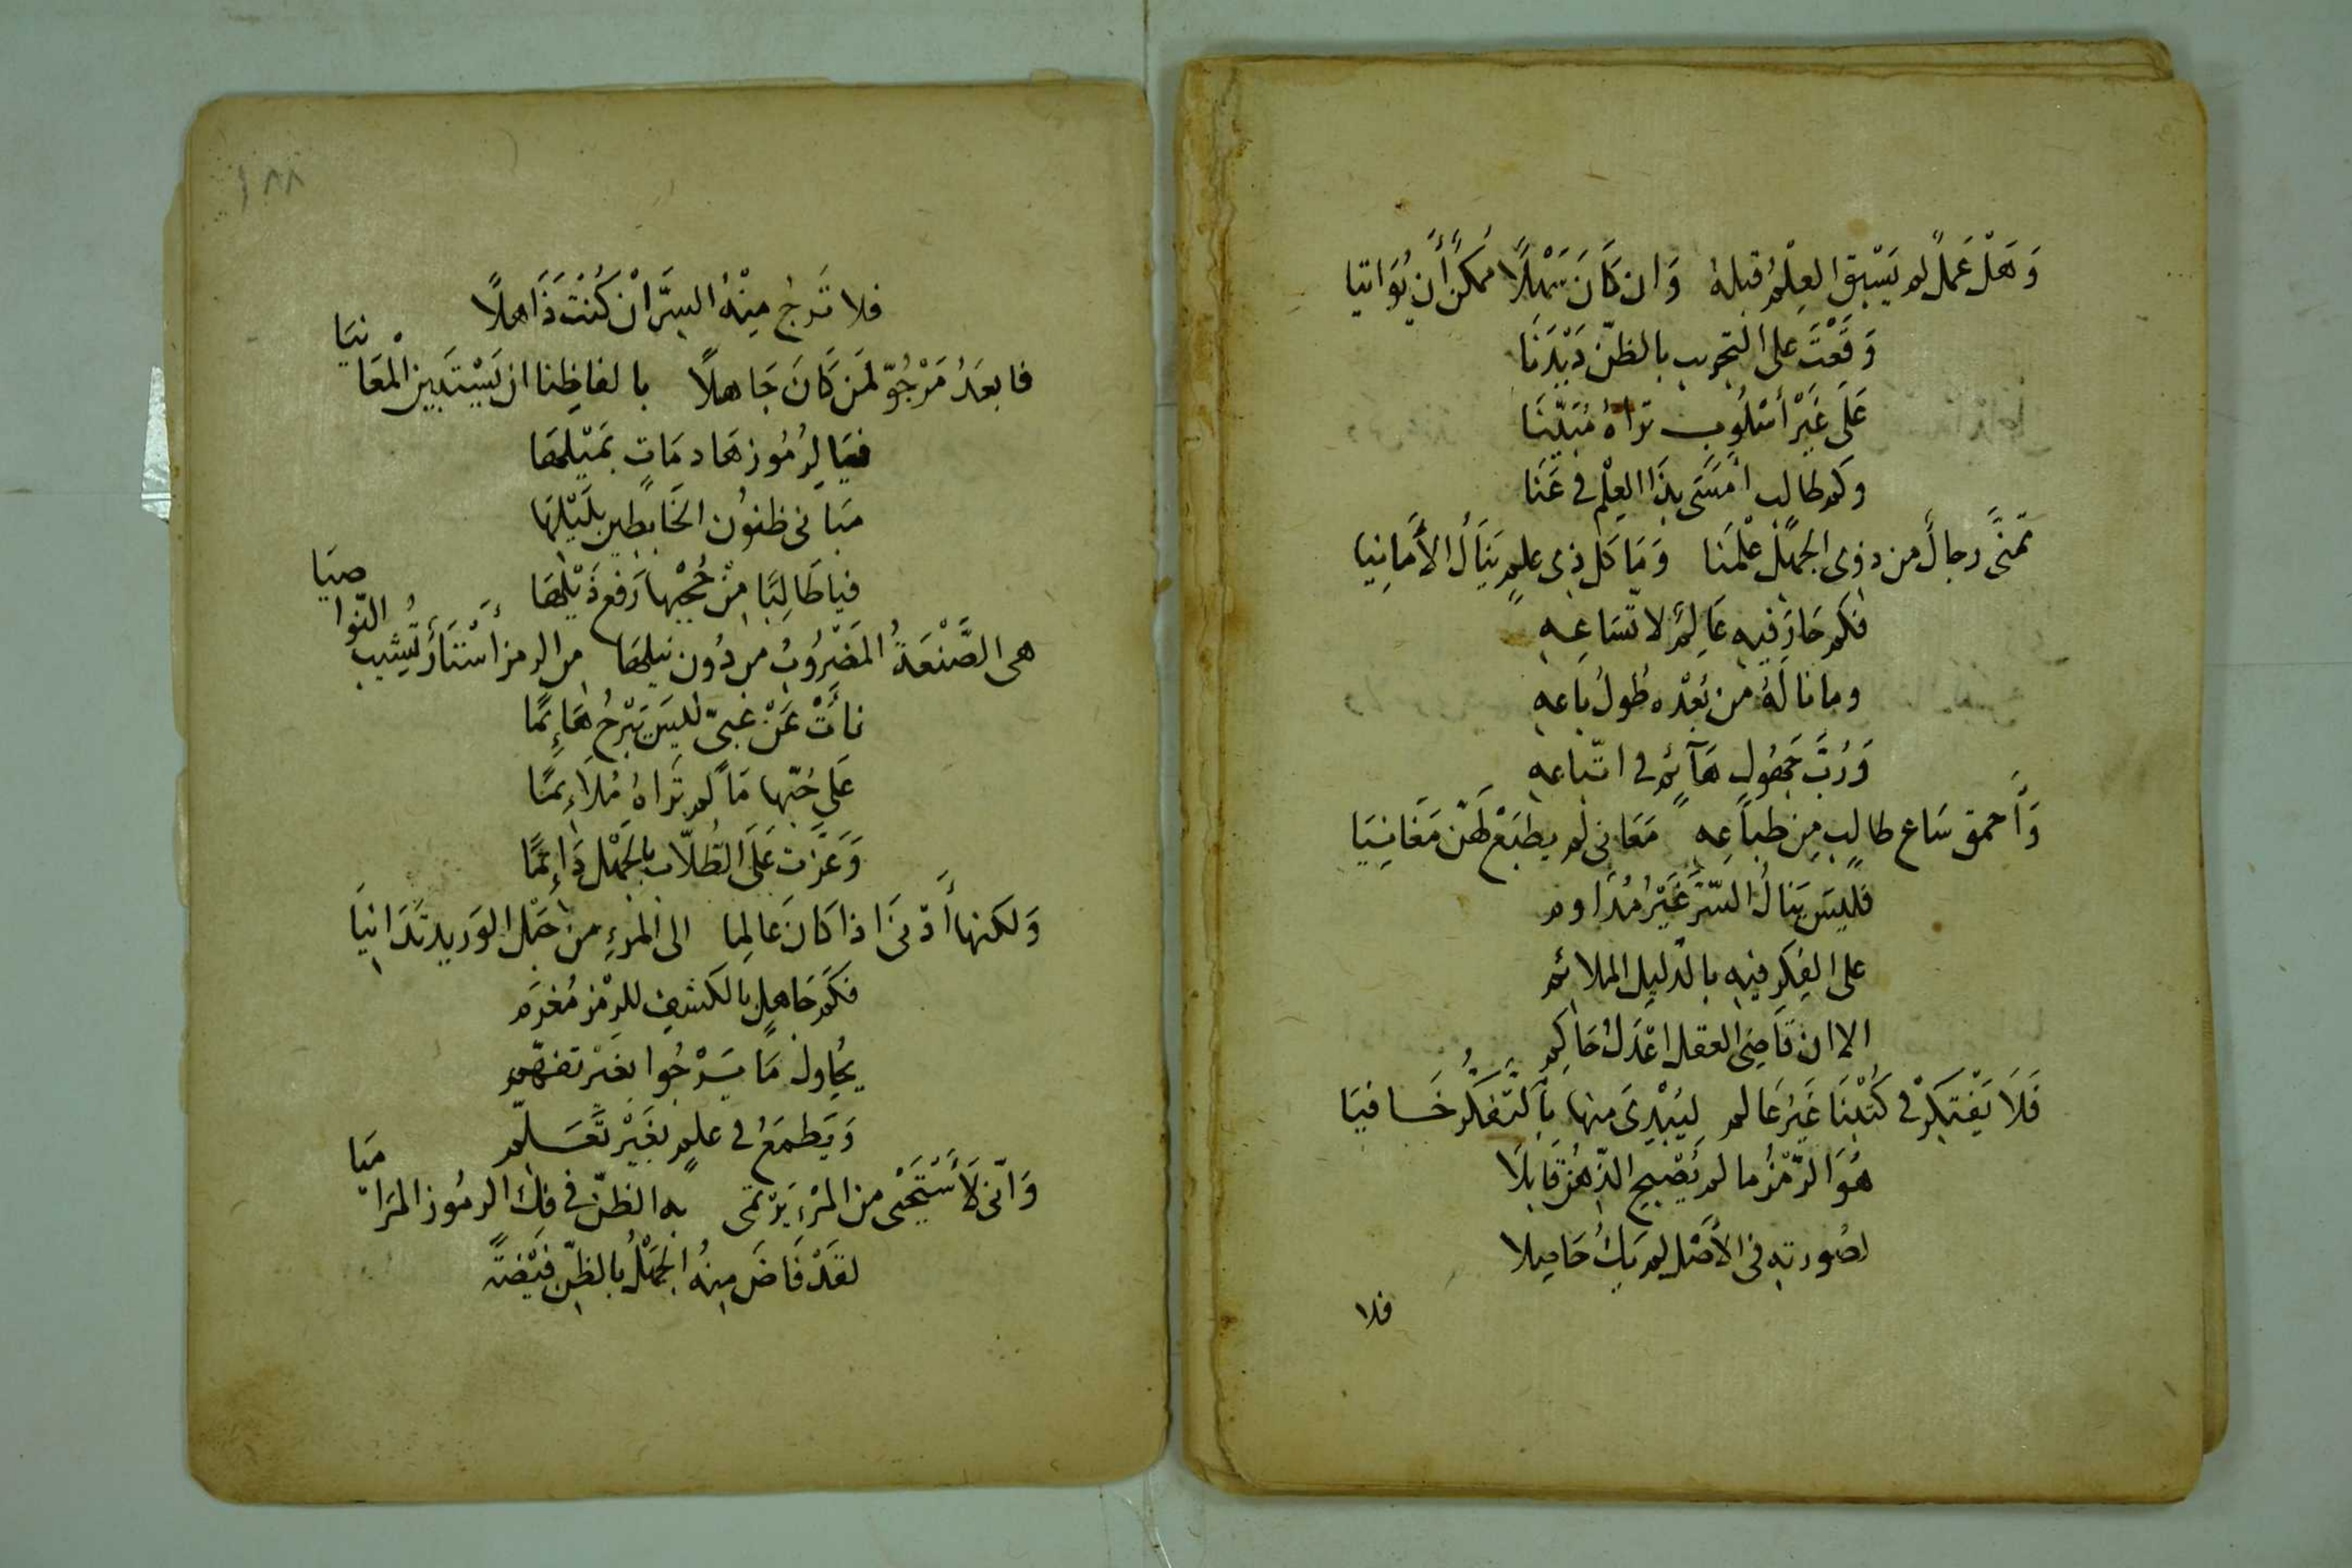 وَهَلْ عَمَلٌ لم يَسْبِق العِلْمُ قبلهُ وَان كَانَ سَهْلًا مُمكنٌ أَن يُوَاتيا
وَقَعْتَ على التجريب بالظنّ دَيْدَنَا
عَلَى غَيْر أسْلُوب تراهُ مُبَيّنَا
وكم طالب أمسَى بذا العِلْم في عَنَا
تمنَّى رجالٌ من ذوى الجهْل عْلمَنا وَمَا كل ذي علمٍ يَنَالُ الأَمانِيا
فكم حَارَ فيه عَالِمٌ لاتّسَاعِهِ
وما نالَهُ من بُعْدِه طُولُ بَاعِهِ
وَرُبَّ جَهُولٍ هَآئمٌ في اتّباعهِ
وَأَحمق سَاع طالبٍ مِن طبَاعِه مَعَانى لم يطبَعْ لهَنّ مَغَانِيَا
فليسَ يَنالُ السّرَّ غَيْرُ مُدَاوم
على الفِكر فيه بالدّليل الملائم
الا ان قَاضِي العقل اعْدَلُ حَاكِم
فَلَا يَفْتكِرْ في كُتْبنَا غَيْرُ عَالم ليُبْدِىَ منها بالتّفكُّرِ خَافيَا
هُوَ الرّمْزُ ما لم يُصْبحِ الذّهنُ قَابِلَا
لصُورته في الأَصْل لم يَكُ حَاصِلا
فلا
١٨٨
فلا تَرجُ مِنْهُ السرَّ انْ كُنْتَ ذَاهلًا
فابعَدُ مَرْجُوّ لمَن كَانَ جَاهلًا بالفاظِنا ان يَسْتَبين الْمعَانيَا
فيَا لِرُمُوز هَادمَاتٍ بمَيْلهَا
مَبانى ظنُون الخَابطِين بلَيْلِهَا
فيا طَالِبًا مِنْ حُجْبها رَفع ذَيْلهَا
هى الصَّنْعَةُ المَضْرُوبُ من دُون نيلهَا من الرمز أسْتَارٌ تُشيب النّواصيَا
نَأَتْ عَنْ غبىّ ليسَ يَبْرحُ هَائِمًا
عَلى حُبّها مَا لم تَراهُ مُلَاءِمًا
وَعَزّت عَلَى الطُلّاب بالجَهْل دَائِمًا
وَلكنها أَدْنى اذا كَانَ عَالِما الى المرْءِ من حَبْل الوَريد تَدَانيَا
فكَم جَاهلٍ بالكشفِ للرمْز مُغرَم
يُحاولُ مَا يَرْجُوا بغَيْر تفهّم
وَيَطمَعُ في علمٍ بغَيْر تَعَلّم
وَانّى لأَسْتَحْيى من المَرْءِ يَرْتمى به الظنّ في فكّ الرمُوز المَرَامِيَا
لقَدْ فَاضَ مِنهُ الجَهْلُ بالظنِّ فيْضَةً